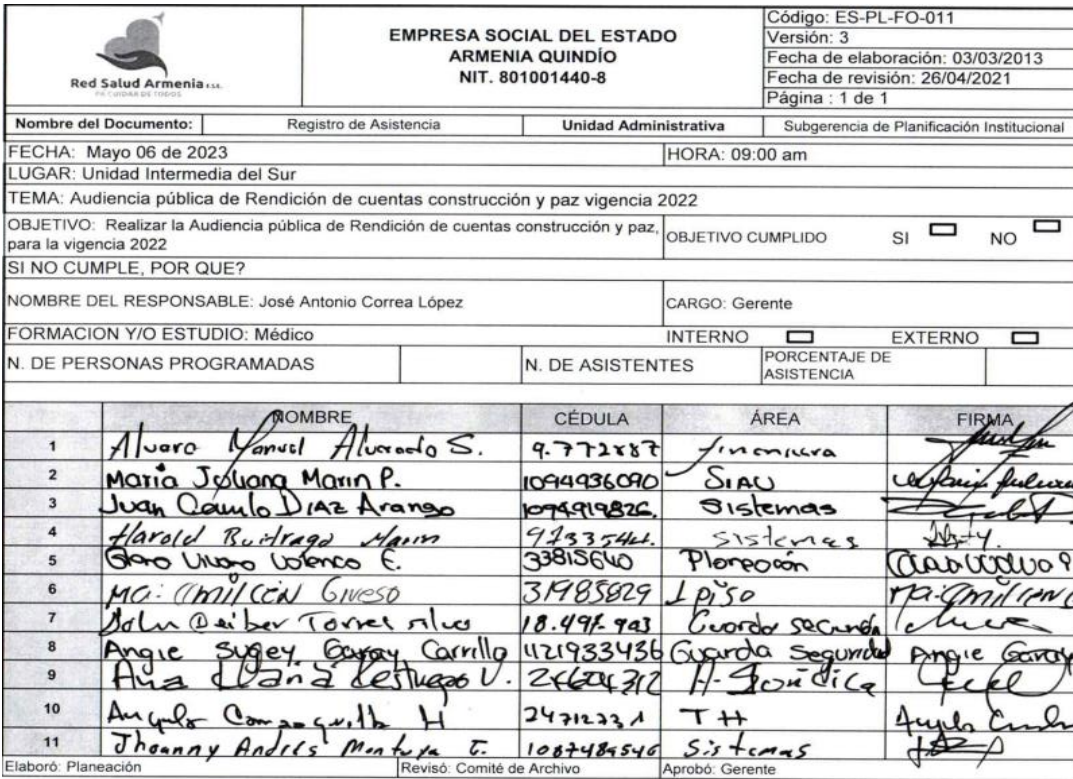 Red Salud Armenia E.S.E.
PA' CUIDAR DE TODOS
EMPRESA SOCIAL DEL ESTADO
ARMENIA QUINDÍO
NIT. 801001440-8
Código: ES-PL-FO-011
Versión: 3
Fecha de elaboración: 03/03/2013
Fecha de revisión: 26/04/2021
Página : 1 de 1
Nombre del Documento: Registro de Asistencia Unidad Administrativa Subgerencia de Planificación Institucional
FECHA: Mayo 06 de 2023 HORA: 09:00 am
LUGAR: Unidad Intermedia del Sur
TEMA: Audiencia pública de Rendición de cuentas construcción y paz vigencia 2022
OBJETIVO: Realizar la Audiencia pública de Rendición de cuentas construcción y paz,
para la vigencia 2022
OBJETIVO CUMPLIDO SI NO
SI NO CUMPLE, POR QUE?
NOMBRE DEL RESPONSABLE: José Antonio Correa López CARGO: Gerente
FORMACION Y/O ESTUDIO: Médico INTERNO EXTERNO
N. DE PERSONAS PROGRAMADAS N. DE ASISTENTES PORCENTAJE DE
ASISTENCIA
NOMBRE CÉDULA ÁREA FIRMA
1 Alvaro Manuel Alvarado S. 9.772887 financiera
2 Maria Juliana Marin P. 1094936090 SIAU
3 Juan Camilo DIAZ Arango 1094919826. Sistemas
4 Harold Buitrago Marin sistemas
5 Viviana Valencia E. 33815640 Planeación
6 Ma: 31985829 1 piso
7 Deiber Torres 18.497.943 Guarda
8 Angie Sugey Garay Carrillo Guarda Seguridad Angie Garay
9 Ana V.
10 H TH
11 Jhoanny Andrés Montoya 1087489546 Sistemas
Elaboró: Planeación Revisó: Comité de Archivo Aprobó: Gerente